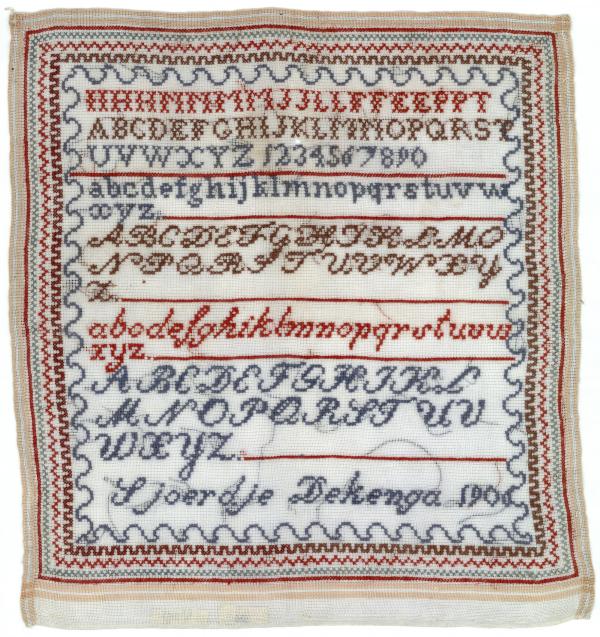 HHHHHHMMJJLLFFEEPPT
ABCDEFGHIJKLMNOPQRST
UVWXYZ 1234567890
abcdefghijklmnopqrstuvw
xyz.
ABCDEFGHIKLMO
NPQRSTUVWXY
Z.
abcdefghiklmnopqrstuvw
xyz.
ABCDEFGHIKL
MNOPQRSTUV
WXYZ.
Sjoerdje Dekenga 1906